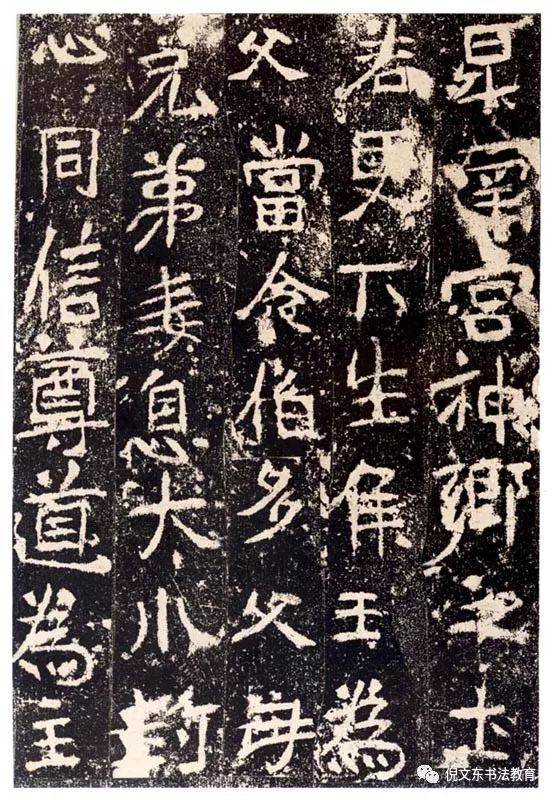 是南宮神鄉之士
若更下生侯王為
父當令伯多父母
兄弟妻息大小
心同信尊道為主
倪文东书法教育